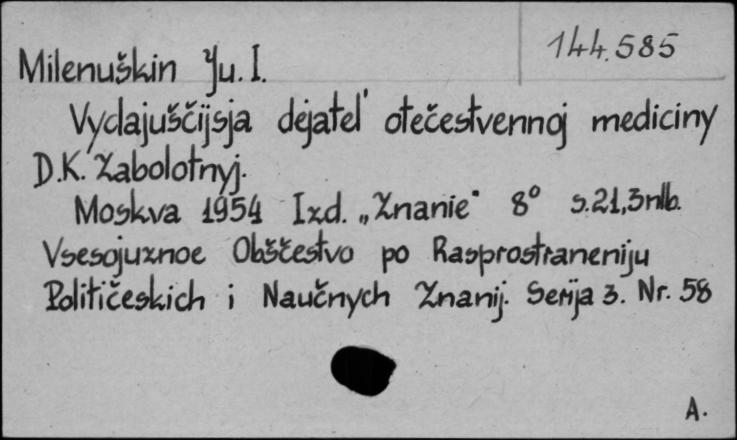 144.585
Milenuškin Ju. I.
Vydajuščijsja dejatel' otečestvennoj mediciny
D.K. Zabolotnyj.
Moskva 1954 Izd. „Znanie" 8° s.21,3nlb.
Vsesojuznoe Obščestvo po Rasprostraneniju
Političeskich i Naučnych Znanij. Serija 3. Nr. 58
A.